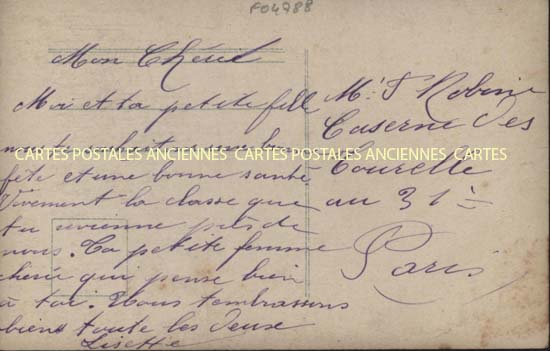 F04988
Mon Chéril
Moi et ta petite fille
te souhaitons une bonne
CARTES POSTALES ANCIENNES CARTES POSTALES ANCIENNES CARTES
fête et une bonne santé
Vivement la classe que
tu vienne près de
nous. Ta petite femme
chérie qui pense bien
à toi. Nous tembrassons
bien toute les deux
Lisette
Mr Robine
Caserne des
Tourelle
au 31e
Paris